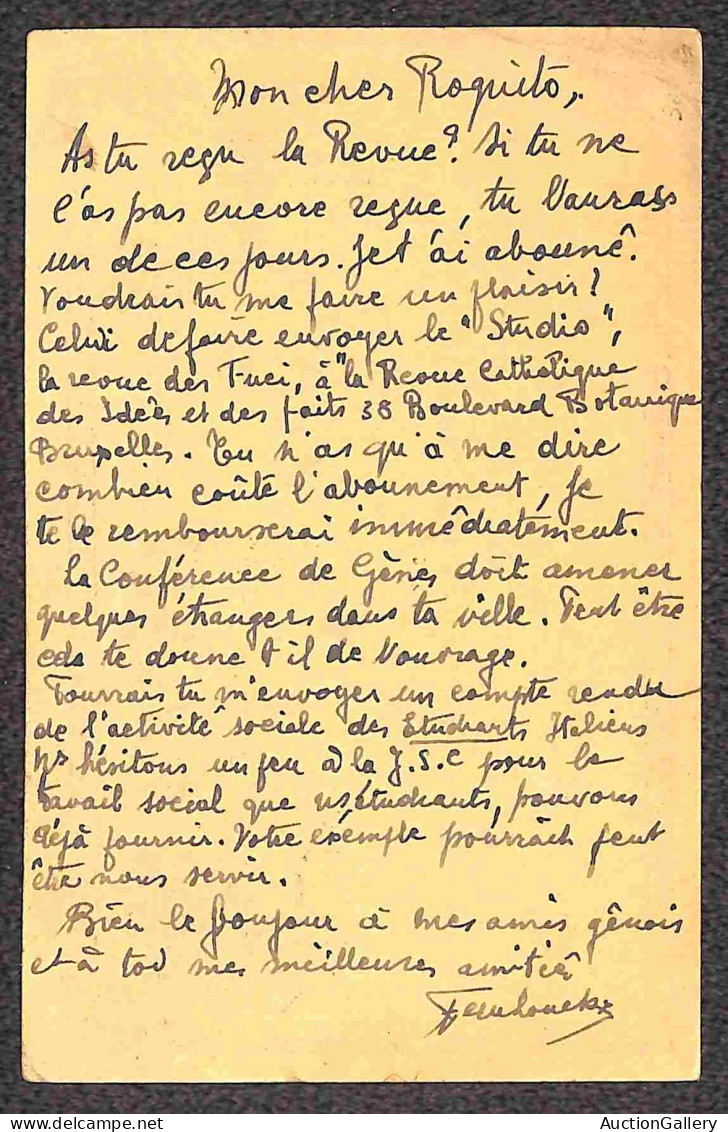 Mon cher Roquito,
As tu reçu la Revue? Si tu ne
l'as pas encore reçue, tu l'auras
un de ces jours. Je t'ai abonné.
Voudrais tu me faire un plaisir?
Celui de faire envoyer le "Studio",
la revue des Fuci, à "la Revue Catholique
des Idées et des faits 38 Boulevard Botanique
Bruxelles. Tu n'as qu'à me dire
combien coûte l'abonnement, je
te le rembourserai immédiatement.
La Conférence de Gênes doit amener
quelques étrangers dans ta ville. Peut être
cela te donne t il de l'ouvrage.
Pourrais tu m'envoyer un compte rendu
de l'activité sociale des Etudiants Italiens
Ns hésitons un peu à la J.S.C pour le
travail social que ns étudiants, pouvons
déjà fournir. Votre exémple pourrait peut
être nous servir.
Bien le bonjour à mes amis gênois
et à toi mes meilleures amitiés
AuctionGallery